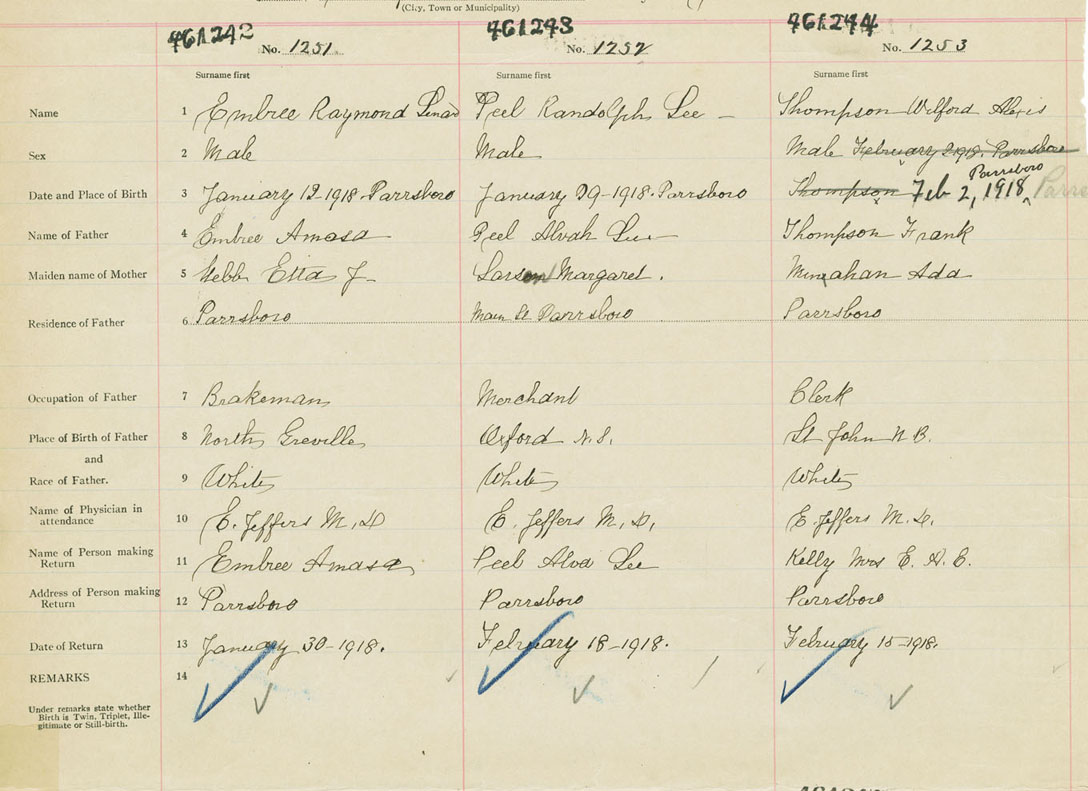 (City, Town or Municipality)
461242 461243 461244
No. 1251. No. 1252 No. 1253
Surname first Surname first Surname first
Name 1 Embree Raymond Peel Randolph Lee Thompson Wilford Alexis
Sex 2 Male Male Male February 2 1918. Parrsboro
Parrsboro
Date and Place of Birth 3 January 12-1918-Parrsboro January 29-1918. Parrsboro Thompson Feb 2, 1918
Name of Father 4 Embree Amasa Peel Alvah Lee Thompson Frank
Maiden name of Mother 5 Webb Etta J Larson Margaret. Ada
Residence of Father 6 Parrsboro Main St Parrsboro Parrsboro
Occupation of Father 7 Brakeman Merchant Clerk
Place of Birth of Father 8 North Greville Oxford N.S. St John N B.
and
Race of Father. 9 White White White
Name of Physician in
attendance 10 E. Jeffers M.D E. Jeffers M.D. E. Jeffers M.D.
Name of Person making
Return 11 Embree Amasa Peel Alva Lee Kelly Mrs E. A. B.
Address of Person making
Return 12 Parrsboro Parrsboro Parrsboro
Date of Return 13 January 30-1918. February 18-1918. February 15-1918.
REMARKS 14
Under remarks state whether
Birth is Twin, Triplet, Ille-
gitimate or Still-birth.